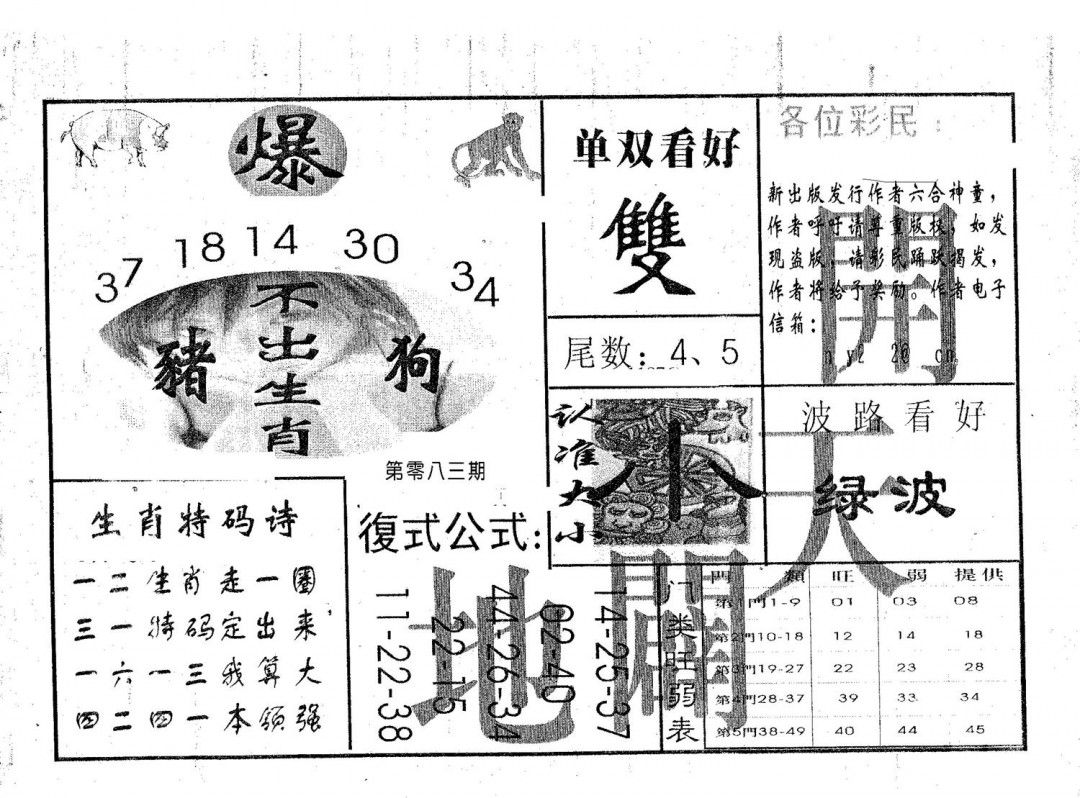 爆
37 18 14 30 34
不出生肖
豬
狗
第零八三期
单双看好
雙
尾数：4、5
各位彩民：
新出版发行作者六合神童，
作者呼吁请尊重版权，如发
现盗版，请彩民踊跃揭发，
作者将给予奖励。作者电子
信箱：
開
认准大小
小
波路看好
绿波
天
生肖特码诗
一二生肖走一圈
三一特码定出来，
一六一三我算大
四二四一本领强
復式公式：
11-22-38
22-15
44-26-34
02-40
14-25-37
地
開
门类旺弱表
門類 旺 弱 提供
第1門1-9 01 03 08
第2門10-18 12 14 18
第3門19-27 22 23 28
第4門28-37 39 33 34
第5門38-49 40 44 45